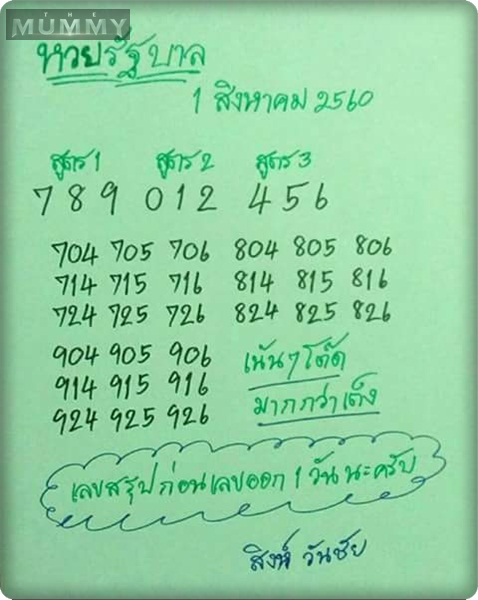 THE
MUMMY
หวยรัฐบาล
1 สิงหาคม 2560
สูตร 1 สูตร 2 สูตร 3
789 012 456
704 705 706 804 805 806
714 715 716 814 815 816
724 725 726 824 825 826
904 905 906
914 915 916
924 925 926
เน้นๆ โต๊ด
มากกว่าเต็ง
เลขสรุปก่อนเลขออก 1 วันนะครับ
สิงห์ วันชัย